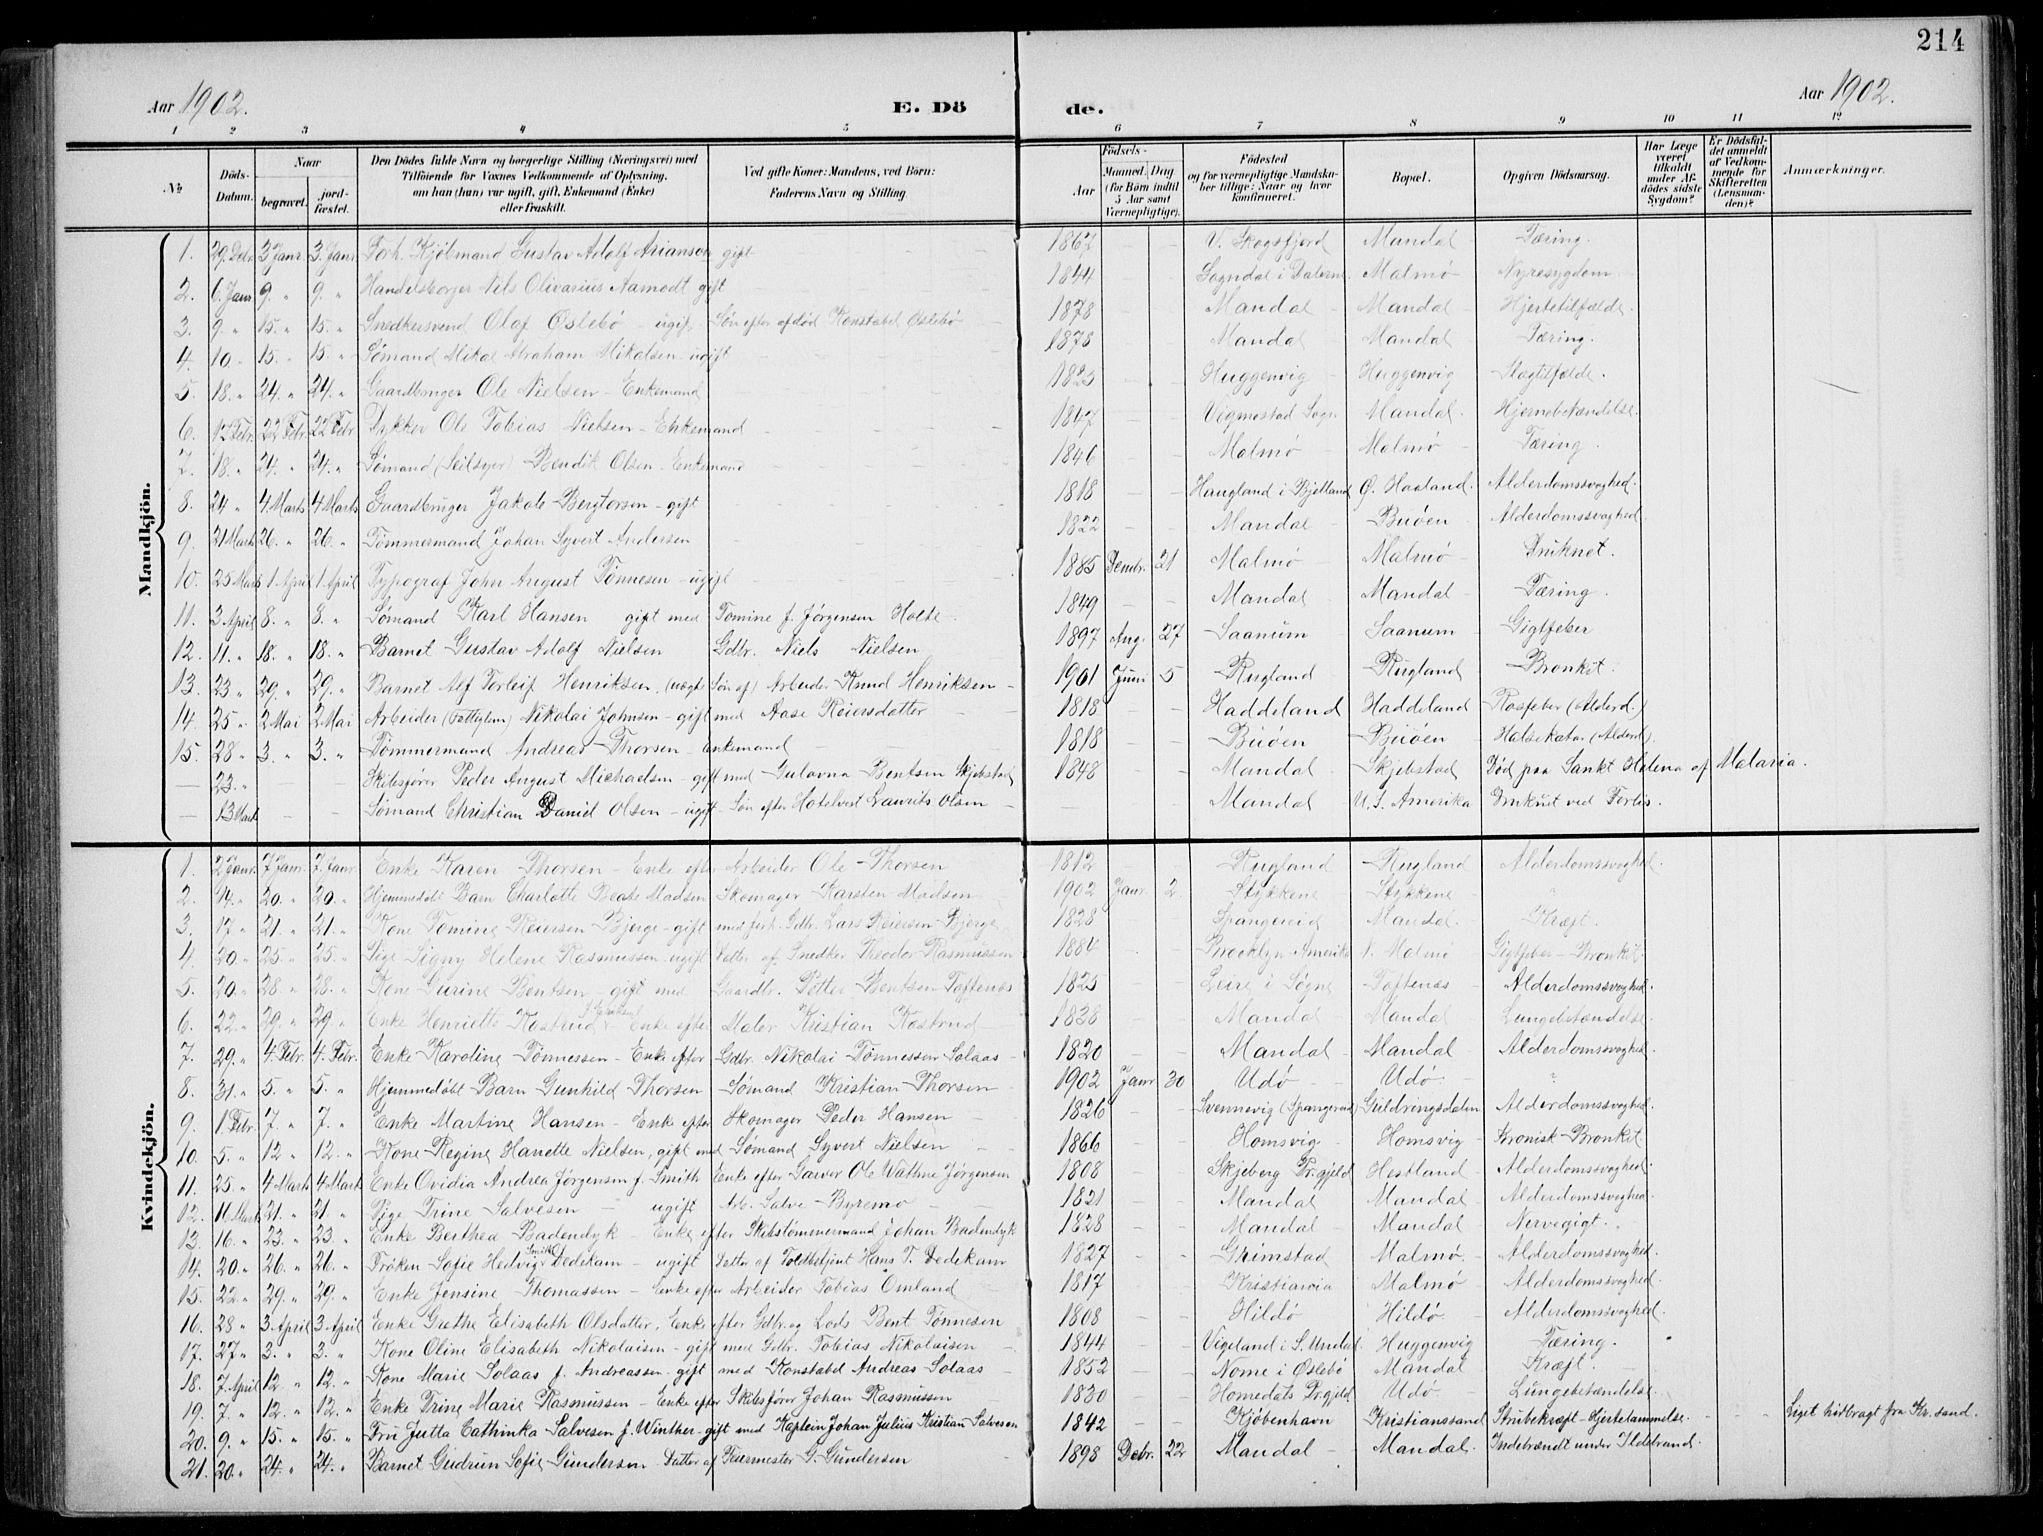 214
Aar 1902. E. Dö de. Aar 1902.
1 2 3 4 5 6 7 8 9 10 11 12
№ Döds-Datum. Naar begravet. jordfæstet. Den Dödes fulde Navn og borgerlige Stilling (Næringsvei) med Tilföiende for Voxnes Vedkommende af Oplysning, om han (hun) var ugift, gift, Enkemand (Enke) eller fraskilt. Ved gifte Koner: Mandens, ved Börn: Faderens Navn og Stilling. Födsels- Aar Maaned. Dag (for Børn indtil 5 Aar samt Værnepligtige). Födested og for værnepligtige Mandskaber tillige: Naar og hvor konfirmeret. Bopæl. Opgiven Dödsaarsag. Har Læge været tilkaldt under Afdödes sidste Sygdom? Er Dödsfaldet anmeldt af Vedkommende for Skifteretten (Lensmanden)? Anmærkninger.
Mandkjön.
1. 29 Debr. 3 Janr. 3. Janr. Forh. Kjöbmand Gustav Adolf Arianson gift 1867 V. Skogsfjord Mandal Tæring.
2. 6. Janr 9. " 9. " Handelsborger Nils Olivarius Aamodt gift 1844 Sogndal i Dalerne. Malmö Nyresygdom
3. 9. " 15. " 15. " Snedkersvend Olaf Øslebö - ugift Sön efter afdöd Konstabel Øslebö 1878 Mandal Mandal Hjertetilfælde.
4. 10. " 15. " 15. " Sömand Mikal Abraham Mikalsen - ugift 1875 Mandal Mandal Tæring.
5. 18. " 24. " 24. " Gaardbruger Ole Nielsen - Enkemand 1825 Huggenvig Huggenvig Slagtilfælde.
6. 12 Febr. 22 Febr. 22 Febr Dykker Ole Tobias Nielsen - Enkemand 1847 Vigmostad Sogn Mandal. Hjernebetændelse.
7. 18. " 24. " 24. " Sömand (Seilsyer) Bendik Olsen. Enkemand 1846 Malmö Malmö Tæring.
8. 24 " 4 Marts 4 Marts Gaardbruger Jakob Bergtorsen - gift 1818 Haugland i Bjelland Ø. Haaland. Alderdomssvaghed.
9. 21 Marts 26. " 26. " Tömmermand Johan Syvert Andersen 1822 Mandal Buöen Alderdomssvaghed.
10. 25 Marts 1 April 1 April Typograf John August Tönnesen - ugift 1885 Dembr. 21 Malmö Malmö Druknet.
11. 3 April 8. " 8. " Sömand Karl Hansen gift med Tomine f. Jörgensen Holte. 1849 Mandal Mandal Tæring.
12. 11. " 18. " 18. " Barnet Gustav Adolf Nielsen Gdbr. Niels Nielsen 1897 Aug. 27 Saanum Saanum Gigtfeber
13. 23 " 29. " 29. " Barnet Alf Torleif Henriksen, (uægte Sön af) Arbeider Knud Henriksen 1901 Juni 5 Rugland Rugland Bronkit.
14. 25 " 2 Mai 2 Mai Arbeider (Fattiglem) Nikolai Johnsen - gift med Aase Reiersdatter 1818 Haddeland Haddeland Rosfeber (Alderd.)
15. 28 " 3. " 3. " Tömmermand Andreas Thorsen - Enkemand 1818 Buöen Buöen Halsekatar (Alderd.)
— 23. " Skibsförer Peder August Michaelsen - gift med Gulovna Bentsen Skjebstad 1848 Mandal Skjebstad Död paa Sankt Helena af Malaria.
— 13 Marts Sömand Christian Daniel Olsen - ugift - Sön efter Hotelvert Laurits Olsen Mandal U.S. Amerika Druknet ved Forlis.
Kvindekjön.
1. 2 Janr. 7 Janr. 7 Janr Enke Karen Thorsen - Enke efter Arbeider Ole Thorsen 1812 Rugland Rugland Alderdomssvaghed.
2. 14. " 20. " 20. " Hjemmedöbt Barn Charlotte Beate Madsen Skomager Karsten Madsen 1902 Janr. 2. Stykkene Stykkene "
3. 17 " 21. " 21. " Kone Tomine Reiersen Bjerge - gift med forh. Gdbr. Lars Reiersen Bjerge 1828 Spangereid Mandal. Kræft.
4. 20 " 25. " 25. " Pige Signy Helene Rasmussen - ugift Datter af Snedker Theodor Rasmussen 1884 Brooklyn Amerika V. Malmö Gigtfeber - Bronkit.
5. 20. " 28. " 28. " Kone Surine Bentsen - gift med Gaardbr. Petter Bentsen Toftenes 1825 Leire i Sögne Toftenes Alderdomssvaghed.
6. 22. " 29. " 29. " Enke Henriette Kastrud - Enke efter Maler Kristian Kastrud 1838 Mandal Mandal Lungebetændelse.
7. 29. " 4. Febr. 4. Febr. Enke Karoline Tönnessen - Enke efter Gdbr. Nikolai Tönnessen Solaas 1820 Mandal Mandal Alderdomssvaghed.
8. 31. " 5. " 5. " Hjemmedöbt Barn Gunhild Thorsen Sömand Kristian Thorsen 1902 Janr 30 Udö Udö "
9. 1. Febr. 7. " 7. " Enke Martine Hansen - Enke efter Skomager Peder Hansen 1826 Svennevig (Spangereid) Guldringsdalen Alderdomssvaghed.
10. 5. " 12 " 12. " Kone Regine Hanette Nielsen, gift med Sömand Syvert Nielsen 1866 Homsvig Homsvig Kronisk Bronkit.
11. 25. " 4 Marts 4 Marts Enke Ovidia Andrea Jörgensen f. Smith Enke efter Garver Ole Wathne Jörgensen 1808 Skjeberg Pr.gjeld Hestland Alderdomssvaghed.
12. 16 Marts 21. " 21. " Pige Trine Salvesen ugift Arb. Salve Byremo 1821 Mandal Mandal Alderdomssvaghed.
13. 16. " 23. " 23. " Enke Berthea Badendyk - Enke efter Skibstömmermand Johan Badendyk 1828 Mandal Mandal Nervegigt.
14. 20. " 26. " 26. " Fröken Sofie Hedvig Smith Dedekam - ugift Datter af Toldbetjent Hans T. Dedekam 1827 Grimstad Malmö. Alderdomssvaghed.
15. 22. " 29. " 29. " Enke Jensine Thomassen - Enke efter Arbeider Tobias Omland 1817 Kristiania Malmö Alderdomssvaghed.
16. 28 " 3 April 3 April Enke Grethe Elisabeth Olsdatter, Enke efter Gdbr. og Lods Bent Tönnesen 1808 Hildö Hildö Alderdomssvaghed.
17. 27 " 3. " 3. " Kone Oline Elisabeth Nikolaisen - gift med Gdbr. Tobias Nikolaisen 1844 Vigeland i S. Undal. Huggenvig Tæring.
18. 7 April 12 " 12. " Kone Marie Solaas f. Andreassen gift med Konstabel Andreas Solaas 1852 Nome i Øslebö Mandal Kræft.
19. 7. " 12. " 12. " Enke Trine Marie Rasmussen - Enke efter Skibsförer Johan Rasmussen 1830 Homedals Pr.gjeld Udö Lungebetændelse.
20. 9. " 15. " 15. " Fru Jutta Cathinka Salvesen f. Winther - gift med Kaptein Johan Julius Kristian Salvesen 1842 Kjöbenhavn Kristianssand Strubekræft - Hjertelammelse. Liget hidbragt fra Kr.sand.
21. 20. " 24. " 24. " Barnet Gudrun Sofie Gundersen Datter af Feiermester G. Gundersen 1898 Debr. 22 Mandal Mandal. Indebrændt under Ildebrand.